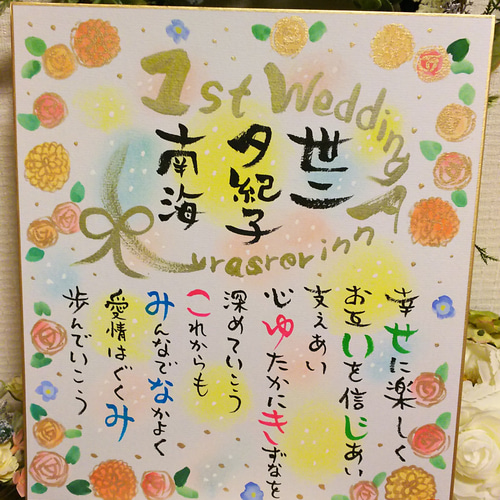 1st Wedding Anniversary
世二
夕紀子
南海
幸せに楽しく
お互いを信じあい
支えあい
心ゆたかにきずなを
深めていこう
これからも
みんなでなかよく
愛情はぐくみ
歩んでいこう